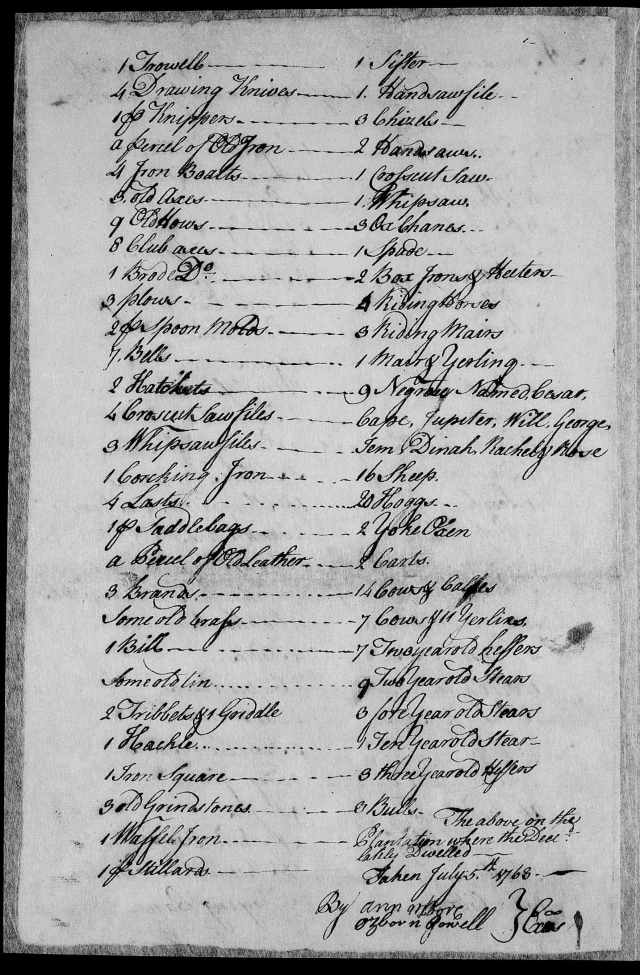 1 Trowell
4 Drawing Knives
1 pr Knippers
a Percel of Old Iron
4 Iron Boalts
3 old Axes
9 Old Hows
8 Club axes
1 Brode Do
3 plows
2 pr Spoon Molds
7 Bells
2 Hatchets
4 Croscut Saw files
3 Whipsaw files
1 Corcking Iron
4 Lasts
1 pr Saddlebags
a Percel of Old Leather
3 Brands
Some old brass
1 Bill
Some old tin
2 Tribbets & 1 Gridale
1 Hackle
1 Iron Square
3 old Grindstones
1 Waffel Iron
1 pr Stillards
1 Sifter
1 Handsaw file
3 Chizels
2 Handsaws
1 Croscut Saw
1 Whipsaw
3 Ox Chanes
1 Spade
2 Box Irons & Heeters
4 Riding Horses
3 Riding Mairs
1 Mair & Yerling
9 Negroes Named, Cesar,
Cape, Jupiter, Will, George,
Jem, Dinah, Rachel & Rose
16 Sheep
20 Hoggs
2 Yoke Oxen
2 Carts
14 Cows & Calfes
7 Cows & 11 Yerlins
7 Two year old heffers
9 Two Year old Stears
3 fore Year old Stears
1 Ten Year old Stear
3 three Year old Heffers
3 Bulls
The above on the
Plantation where the Decd
lately Dwelled
Taken July 5th 1768
By ann moore
ozborn Jowell } Exrs